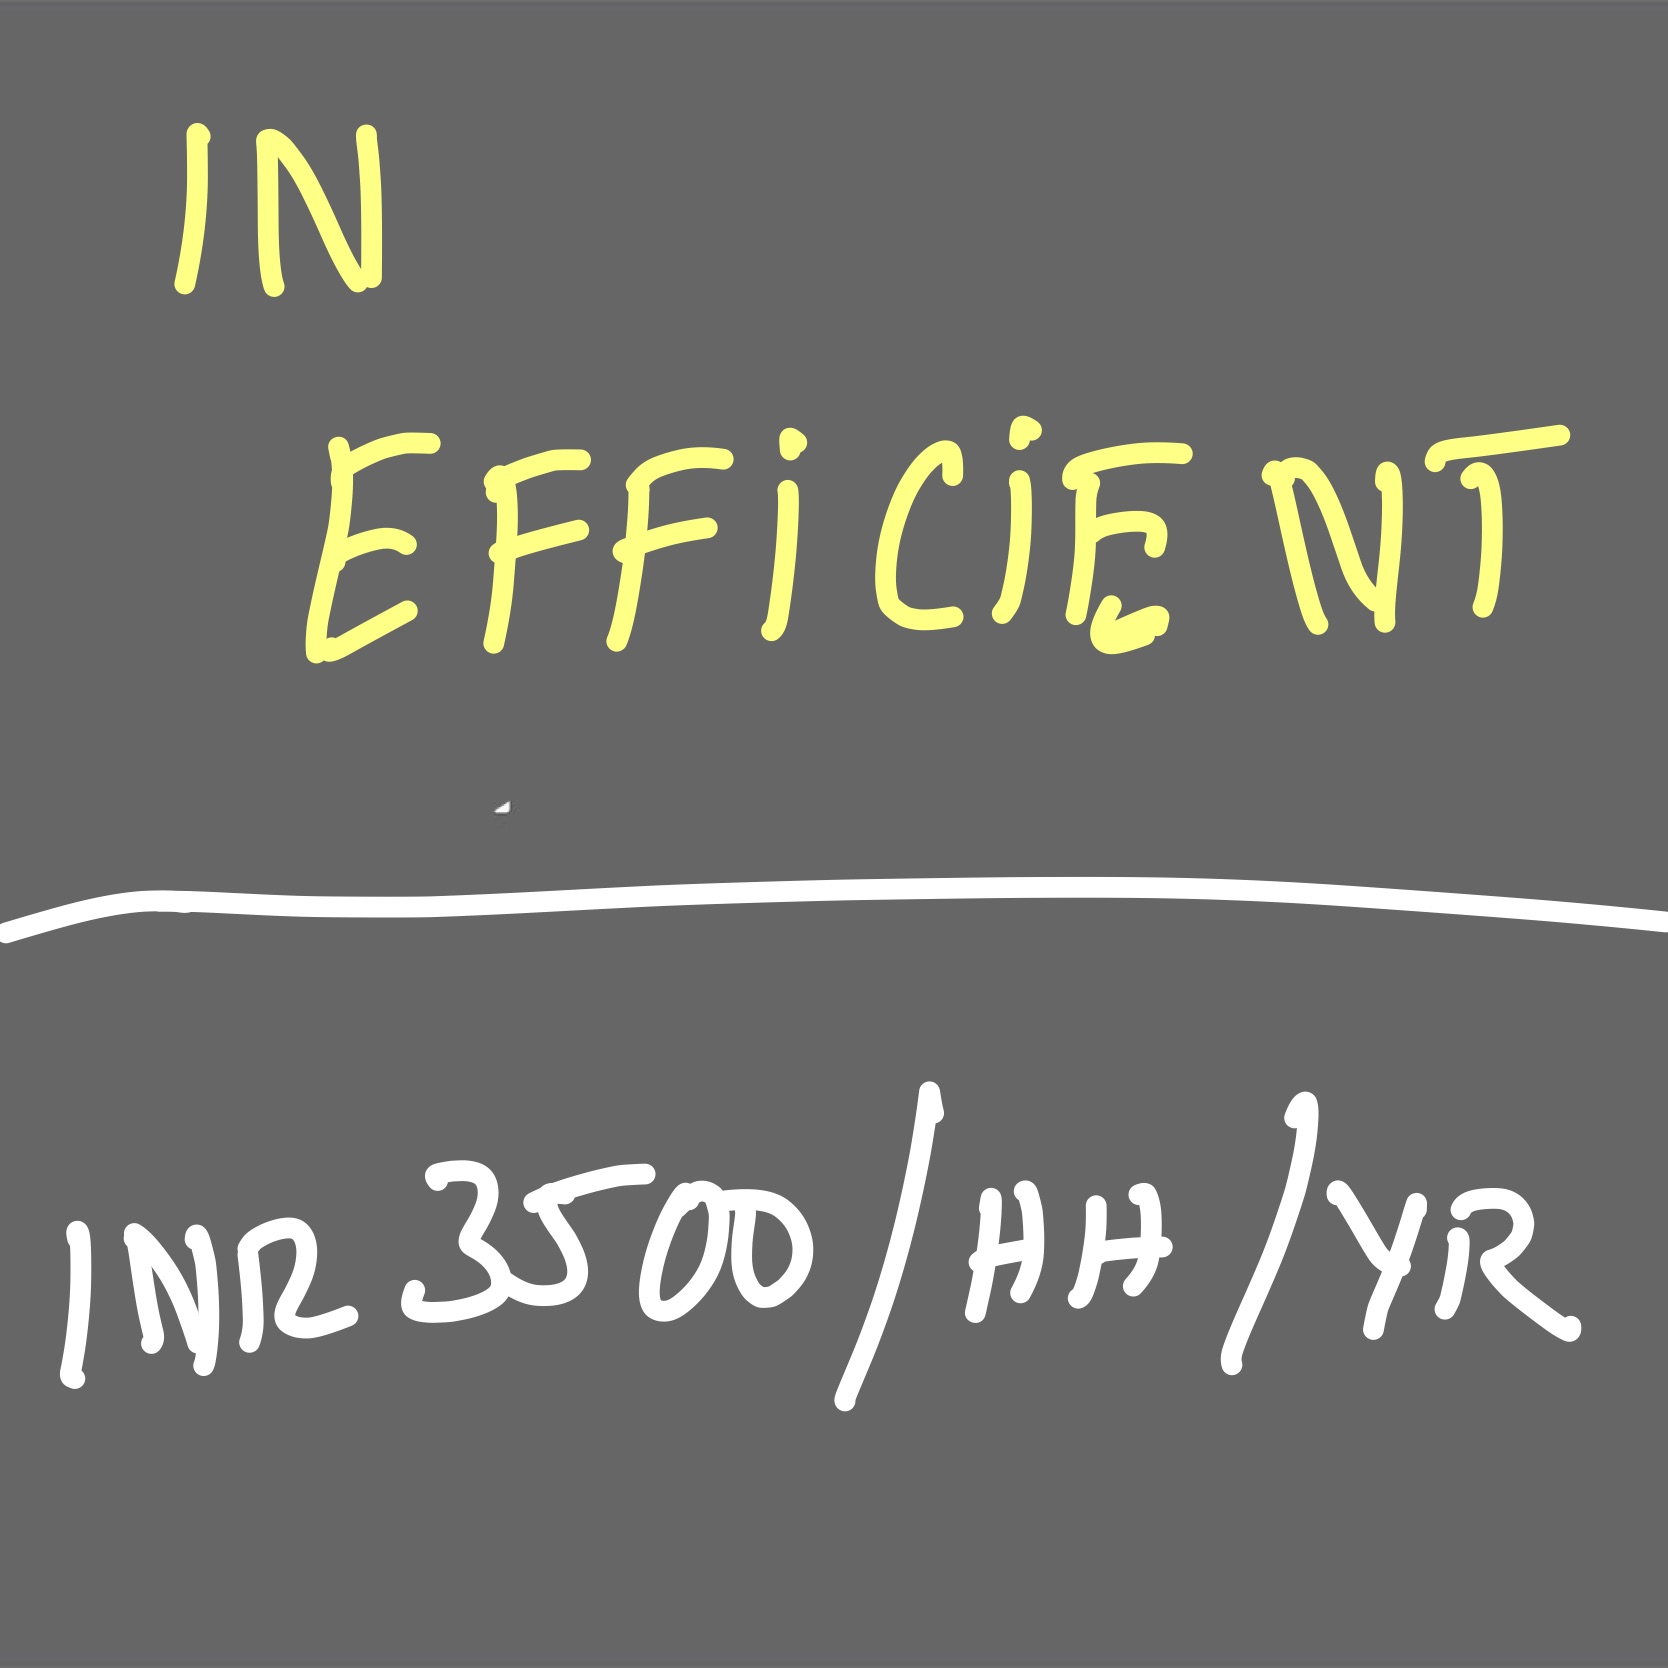 IN
EFFiCiENT
INR 3500/HH/YR